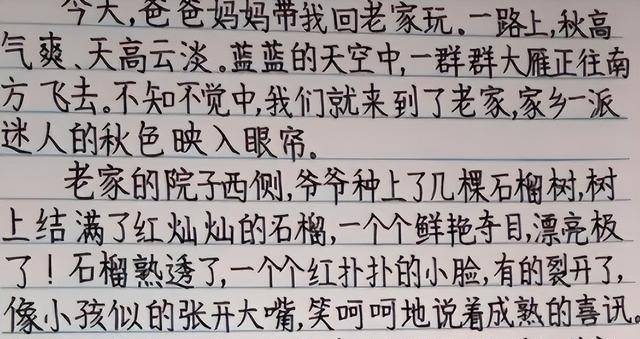 今天,爸爸妈妈带我回老家玩。一路上,秋高
气爽、天高云淡。蓝蓝的天空中,一群群大雁正往南
方飞去。不知不觉中,我们就来到了老家,家乡一派
迷人的秋色映入眼帘。
老家的院子西侧,爷爷种上了几棵石榴树,树
上结满了红灿灿的石榴,一个个鲜艳夺目,漂亮极
了!石榴熟透了,一个个红扑扑的小脸,有的裂开了,
像小孩似的张开大嘴,笑呵呵地说着成熟的喜讯。